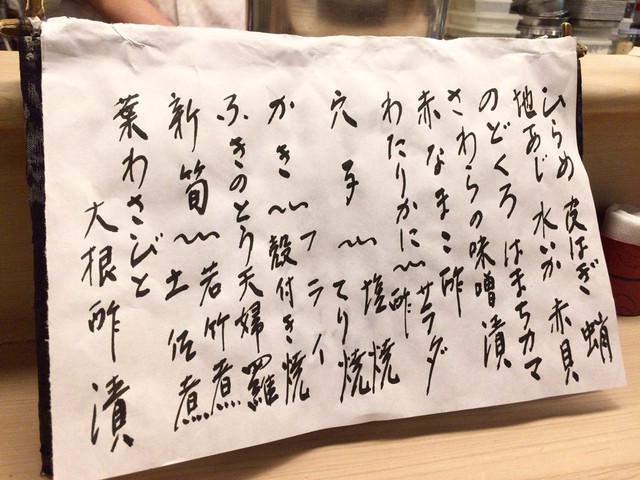 ひらめ 皮はぎ 蛸
地あじ 水いか 赤貝
のどくろ はまちカマ
さわらの味噌漬
赤なまこ酢
わたりかに〜酢 サラダ
塩焼
穴子〜てり焼
かき〜フライ
殻付き焼
ふきのとう天婦羅
新筍〜若竹煮
土佐煮
葉わさびと
大根酢漬